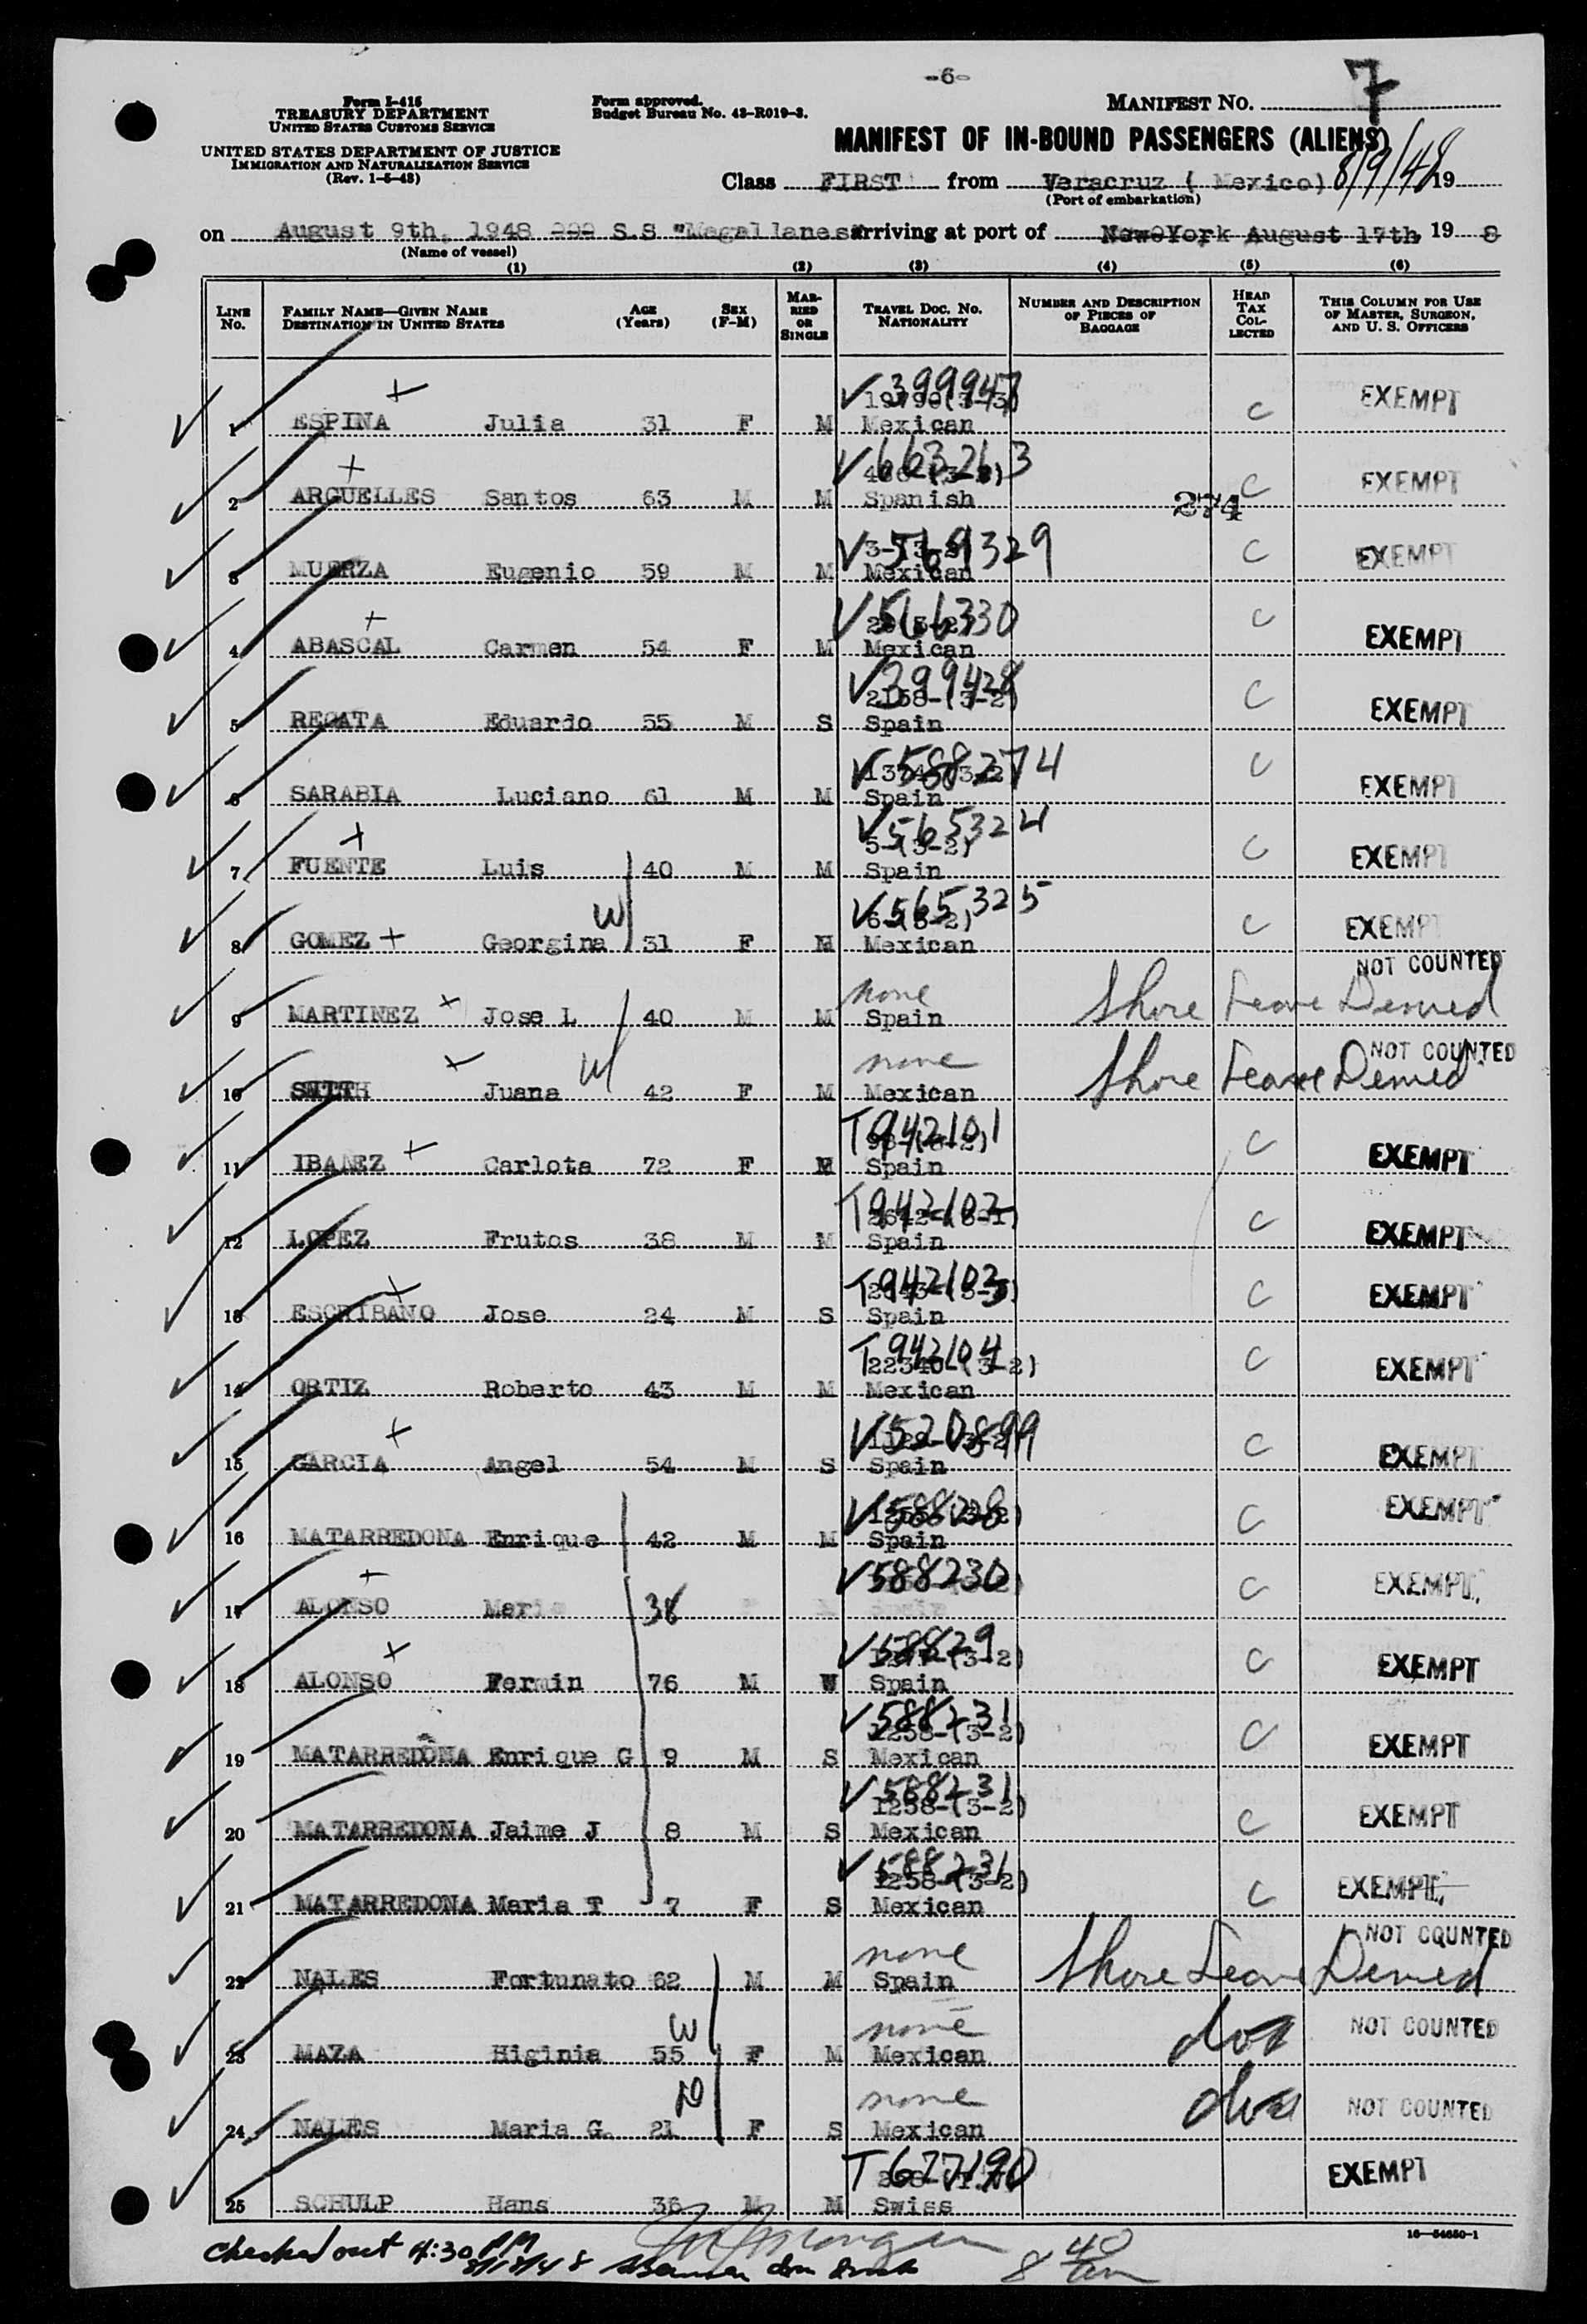 -6-
7
Form I-415
TREASURY DEPARTMENT
UNITED STATES CUSTOMS SERVICE
UNITED STATES DEPARTMENT OF JUSTICE
IMMIGRATION AND NATURALIZATION SERVICE
(Rev. 1-5-48)
Form approved.
Budget Bureau No. 43-R019-3.
MANIFEST NO.
MANIFEST OF IN-BOUND PASSENGERS (ALIENS)
Class FIRST from Veracruz ( Mexico) 8/9/48 19
(Port of embarkation)
on August 9th, 1948 S.S "Magallanes" arriving at port of New York August 17th, 19 8
(Name of vessel)
(1) (2) (3) (4) (5) (6)
LINE No. FAMILY NAME—GIVEN NAME DESTINATION IN UNITED STATES AGE (Years) SEX (F-M) MARRIED OR SINGLE TRAVEL DOC. NO. NATIONALITY NUMBER AND DESCRIPTION OF PIECES OF BAGGAGE HEAD TAX COLLECTED THIS COLUMN FOR USE OF MASTER, SURGEON, AND U. S. OFFICERS
V 399947
1 ESPINA Julia 31 F M Mexican C EXEMPT
V 663263
2 ARGUELLES Santos 63 M M Spanish 274 C EXEMPT
V 569329
3 MUERZA Eugenio 59 M M Mexican C EXEMPT
V 566330
4 ABASCAL Carmen 54 F M Mexican C EXEMPT
V 399428
2158-(3-2)
5 REGATA Eduardo 55 M S Spain C EXEMPT
V 588274
6 SARABIA Luciano 61 M M Spain C EXEMPT
V 565324
5-(3-2)
7 FUENTE Luis 40 M M Spain C EXEMPT
V 565325
6-(3-2)
8 GOMEZ Georgina W 31 F M Mexican C EXEMPT
none NOT COUNTED
9 MARTINEZ Jose L 40 M M Spain Shore Leave Denied
none NOT COUNTED
10 SMITH Juana W 42 F M Mexican Shore Leave Denied
T 942101
11 IBANEZ Carlota 72 F Spain C EXEMPT
T 942102
12 LOPEZ Frutos 38 M M Spain C EXEMPT
T 942103
13 ESCRIBANO Jose 24 M S Spain C EXEMPT
T 942104
22340-(3-2)
14 ORTIZ Roberto 43 M M Mexican C EXEMPT
V 520899
15 GARCIA Angel 54 M S Spain C EXEMPT
V 588228
16 MATARREDONA Enrique 42 M M Spain C EXEMPT
V 588230
17 ALONSO Maria 38 C EXEMPT
V 58829
18 ALONSO Fermin 76 M W Spain C EXEMPT
V 588231
1258-(3-2)
19 MATARREDONA Enrique G 9 M S Mexican C EXEMPT
V 588231
1258-(3-2)
20 MATARREDONA Jaime J 8 M S Mexican C EXEMPT
V 588231
1258-(3-2)
21 MATARREDONA Maria T 7 F S Mexican C EXEMPT
none NOT COUNTED
22 NALES Fortunato 62 M M Spain Shore Leave Denied
none
23 MAZA Higinia W 55 F M Mexican NOT COUNTED
none
24 NALES Maria G. D 21 F S Mexican NOT COUNTED
T 677190
25 SCHULP Hans 36 M M Swiss EXEMPT
16—54650-1
Checked out 4:30 PM
8/18/48
8 40 am